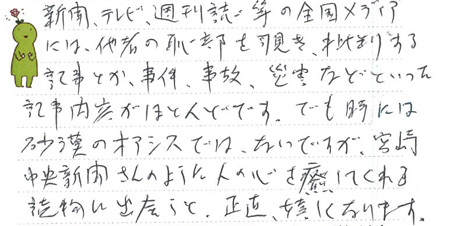 新聞、テレビ、週刊誌等の全国メディア
には、他者の恥部を覗き、批判する
記事とか、事件、事故、災害などといった
記事内容がほとんどです。でも時には
砂漠のオアシスでは、ないですが、宮崎
中央新聞さんのように人の心を癒してくれる
読物に出会うと、正直、嬉しくなります。